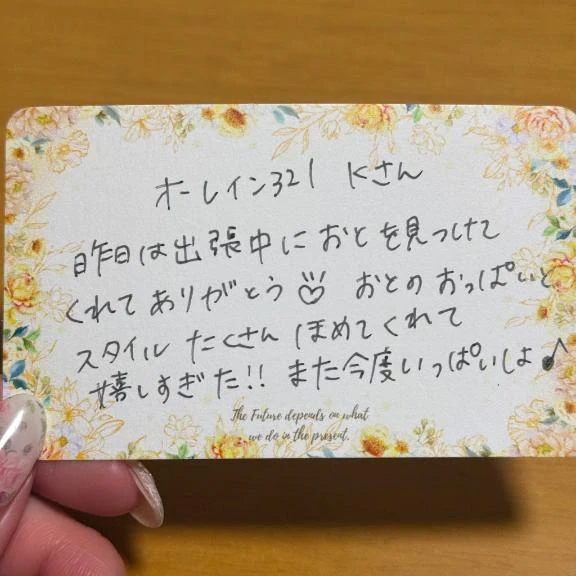 オーレイン321 Kさん
昨日は出張中におとを見つけて
くれてありがとう♡ おとのおっぱいと
スタイル たくさん ほめてくれて
嬉しすぎた!! また今度いっぱいしよ♪
The Future depends on what
we do in the present.